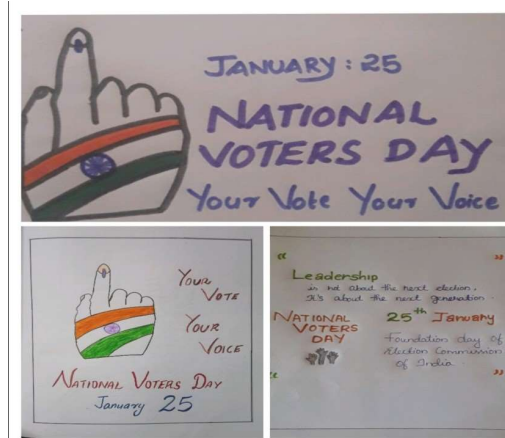 JANUARY : 25
NATIONAL
VOTERS DAY
Your Vote Your Voice
YOUR
VOTE
YOUR
VOICE
NATIONAL VOTERS DAY
January 25
"
"
Leadership
is not about the next election,
It's about the next generation.
NATIONAL
VOTERS
DAY
25th January
Foundation day of
Election Commission
of India
"
"